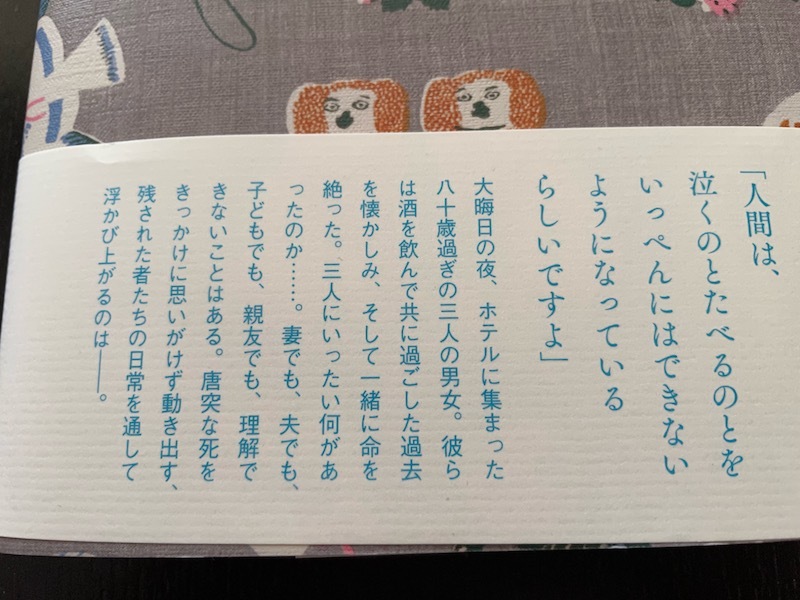 「人間は、
泣くのとたべるのとを
いっぺんにはできない
ようになっている
らしいですよ」
大晦日の夜、ホテルに集まった
八十歳過ぎの三人の男女。彼ら
は酒を飲んで共に過ごした過去
を懐かしみ、そして一緒に命を
絶った。三人にいったい何があ
ったのか……。妻でも、夫でも、
子どもでも、親友でも、理解で
きないことはある。唐突な死を
きっかけに思いがけず動き出す、
残された者たちの日常を通して
浮かび上がるのは――。